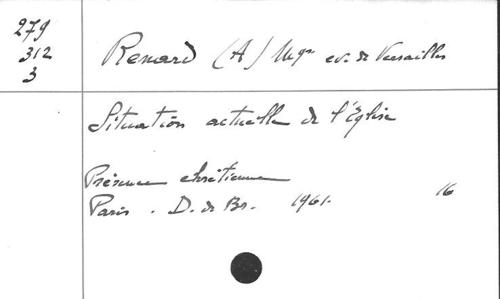 279
312
3
Renard (A) Mgr ev. de Versailles
Situation actuelle de l'Église
Présence chrétienne
Paris. D. de Br. 1961. 16